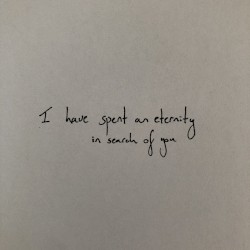 I have spent an eternity
in search of you